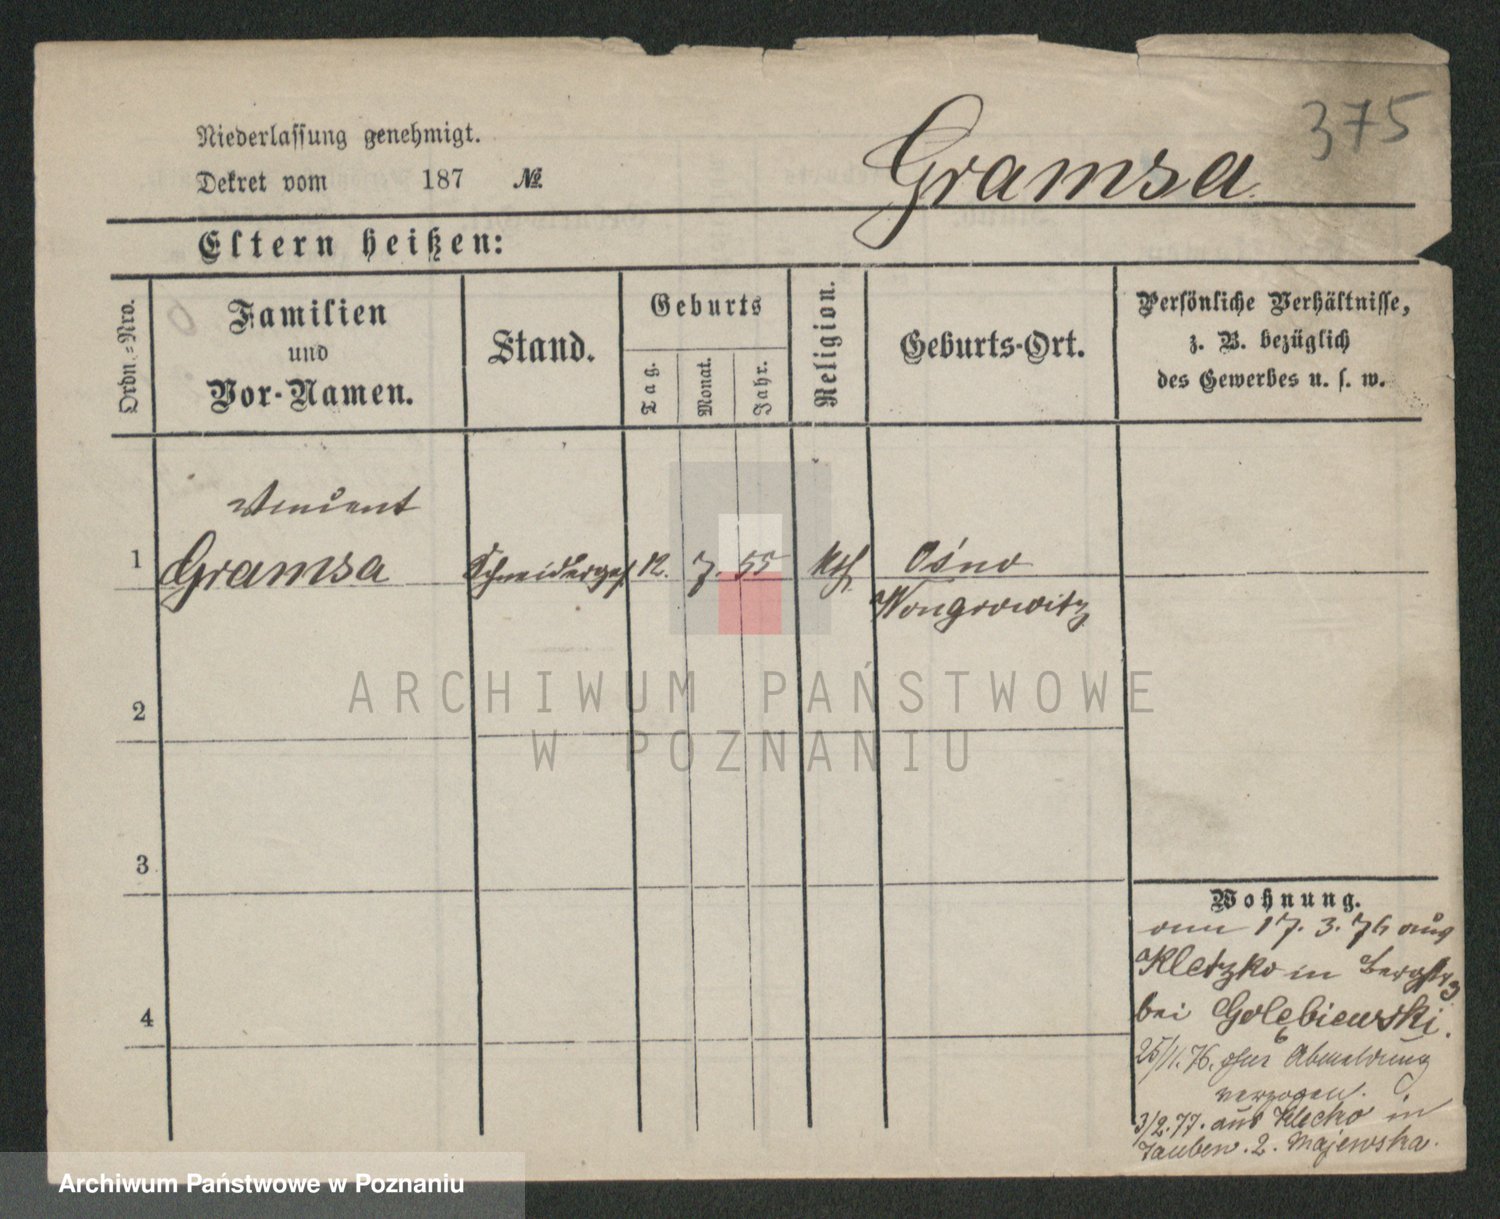 375
Niederlassung genehmigt.
Dekret vom 187 №
Gramsa
Eltern heißen:
Ordn.-Nro.
Familien
und
Vor-Namen.
Stand.
Geburts
Tag.
Monat.
Jahr.
Religion.
Geburts-Ort.
Persönliche Verhältnisse,
z. B. bezüglich
des Gewerbes u. s. w.
Vincent
1 Gramsa Schneiderges 12. 7. 55 Kth. Ośno
Wongrowitz
2
3
4
Wohnung.
am 17. 3. 76 aus
Kletzko in Bergstr 3
bei Golębiewski.
25/11. 76. ohne Abmeldung
verzogen.
3/2. 77. aus Klecko in
Tauben. 2. Majewska.
ARCHIWUM PAŃSTWOWE
W POZNANIU
Archiwum Państwowe w Poznaniu